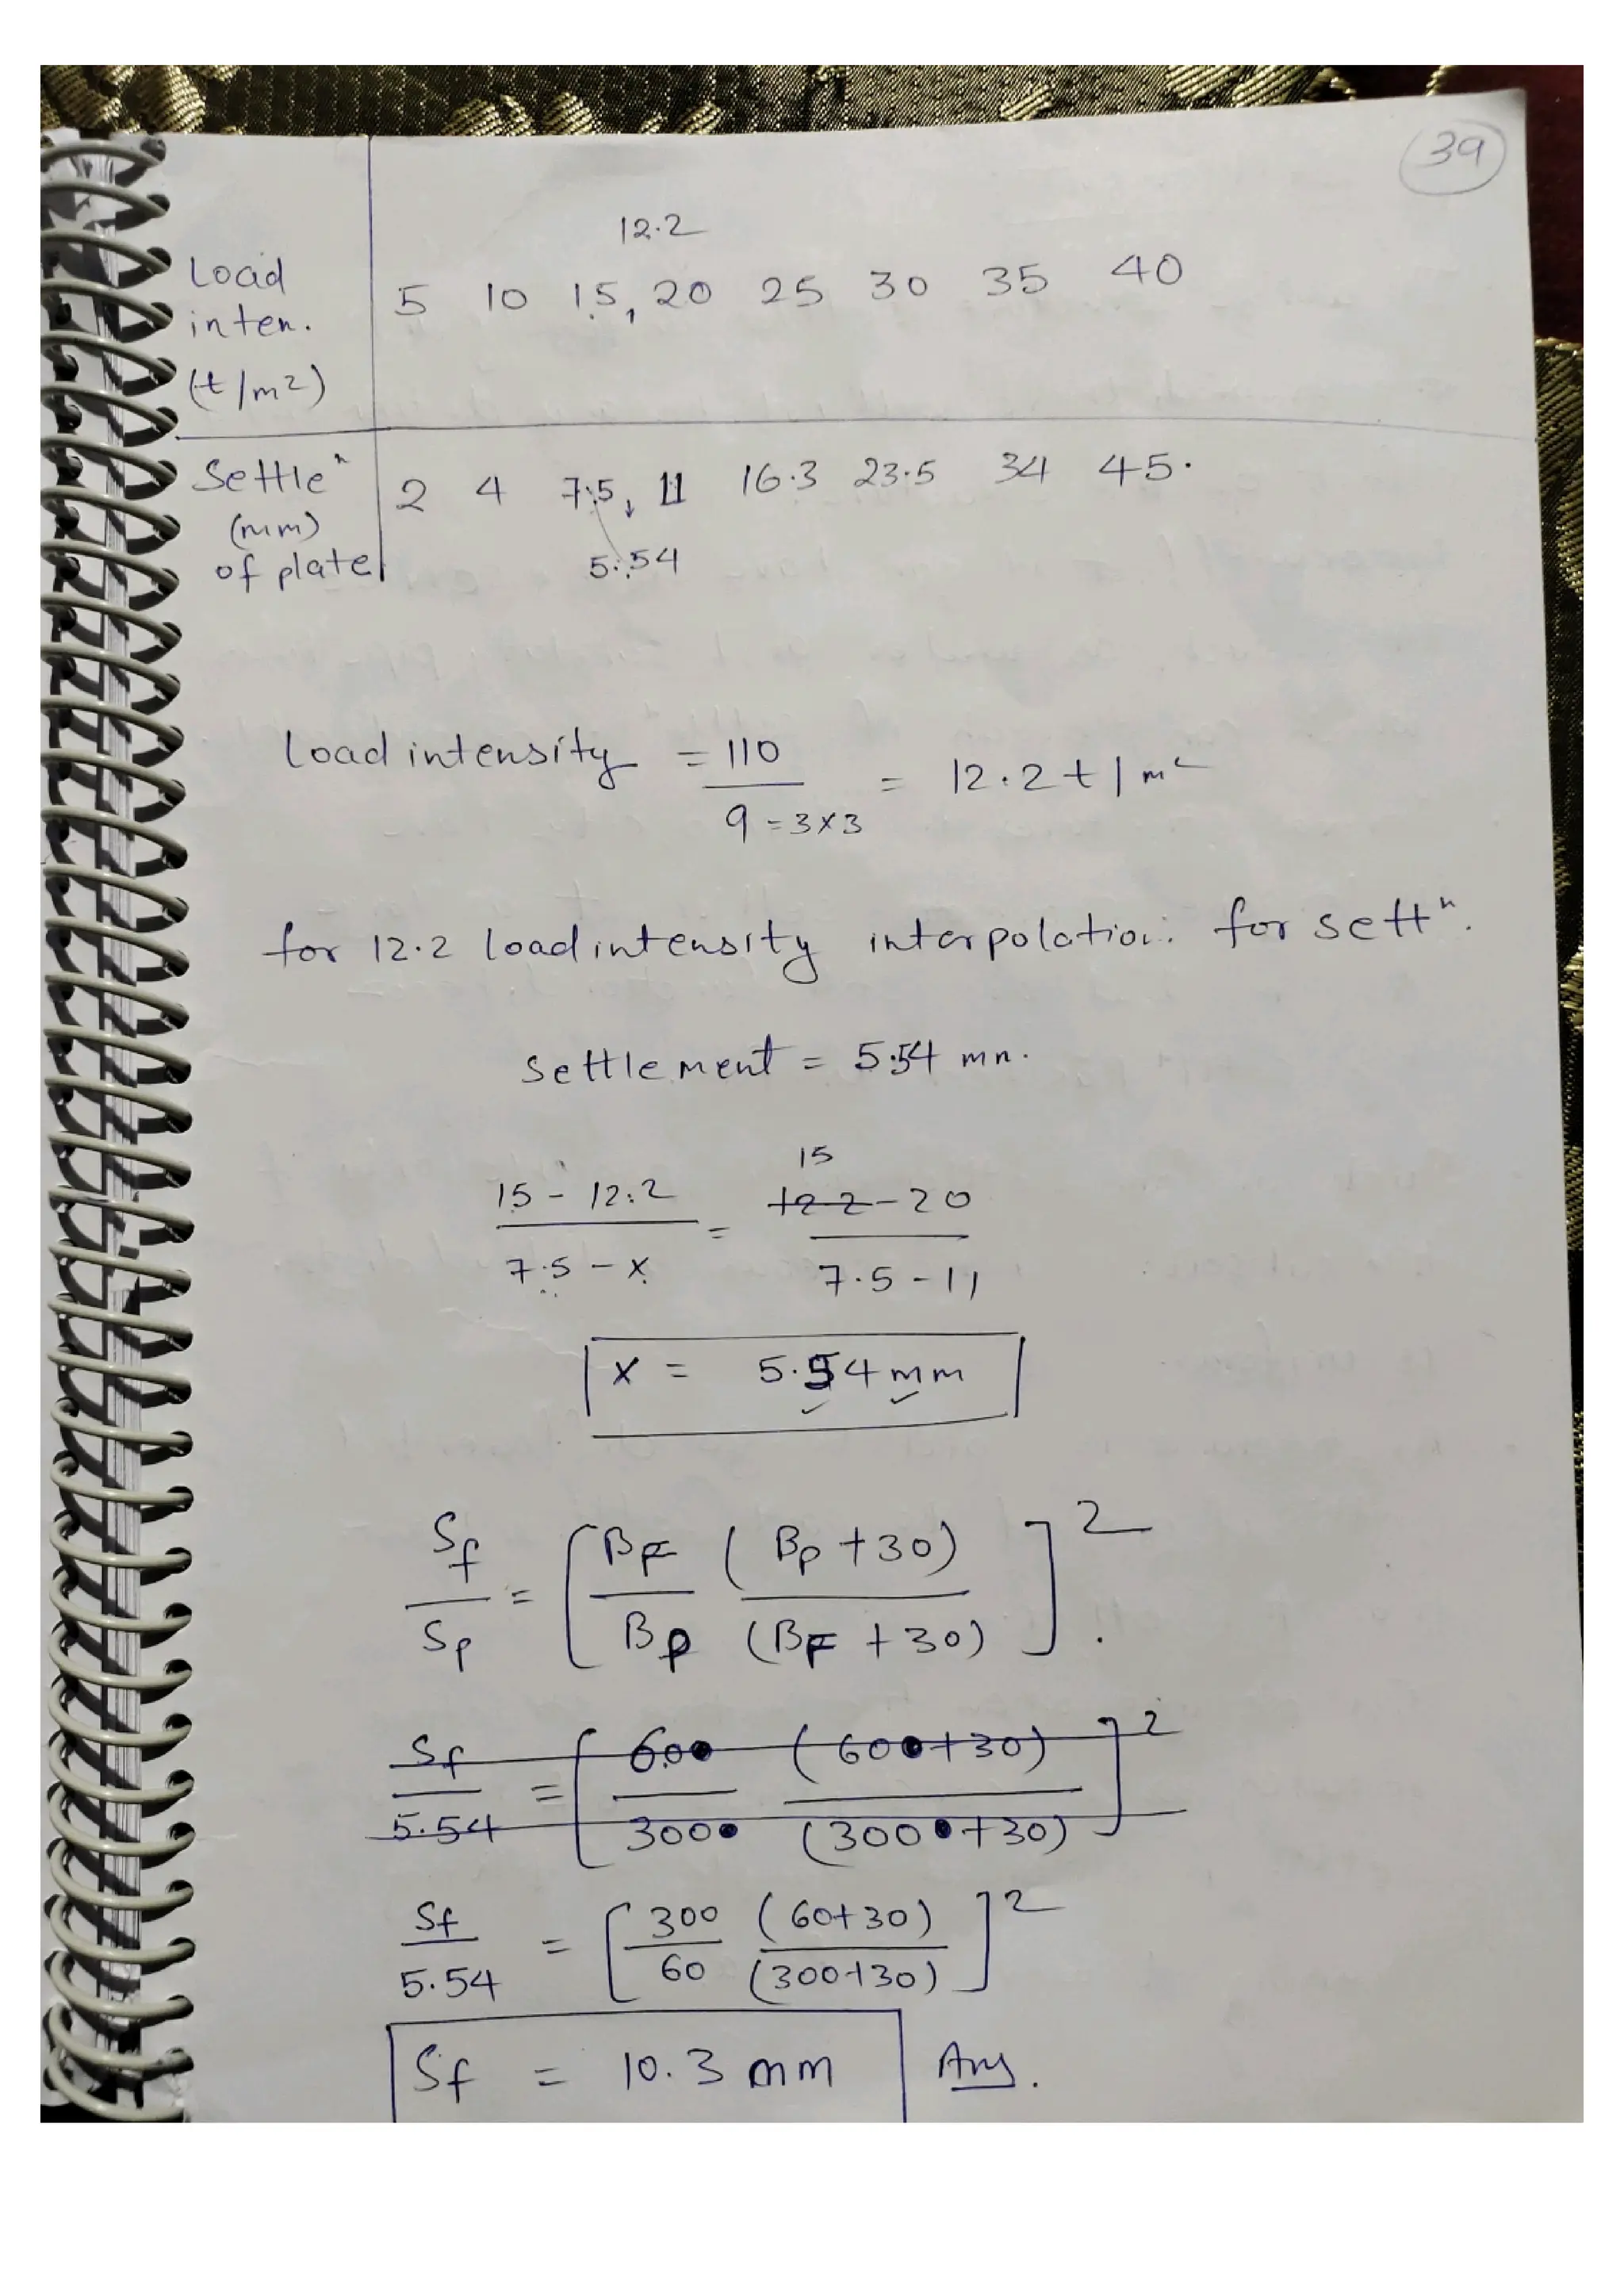 39
12.2
Load inten. (t/m²) 5 10 15, 20 25 30 35 40
Settleⁿ (mm) of plate 2 4 7.5, 11 16.3 23.5 34 45.
5.54
Load intensity = 110 / 9 = 3×3 = 12.2 t/m²
for 12.2 load intensity interpolation. for settⁿ.
Settlement = 5.54 mm.
15
15 - 12.2 / 7.5 - x = 12.2 - 20 / 7.5 - 11
x = 5.54 mm
Sf / Sp = [ BF / Bp (Bp + 30) / (BF + 30) ]² .
Sf / 5.54 = [ 600 / 3000 (600+30) / (3000+30) ]²
Sf / 5.54 = [ 300 / 60 (60+30) / (300+30) ]²
Sf = 10.3 mm Ans.